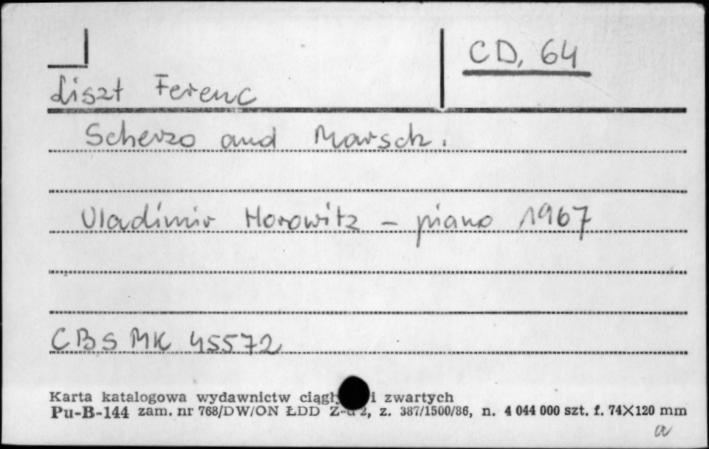 CD, 64
Liszt Ferenc
Scherzo and Marsch.
Vladimir Horowitz – piano 1967
CBS MK 45572
Karta katalogowa wydawnictw i zwartych
Pu-B-144 zam. nr 768/DW/ON ŁDD 2, z. 387/1500/86, n. 4 044 000 szt. f. 74X120 mm